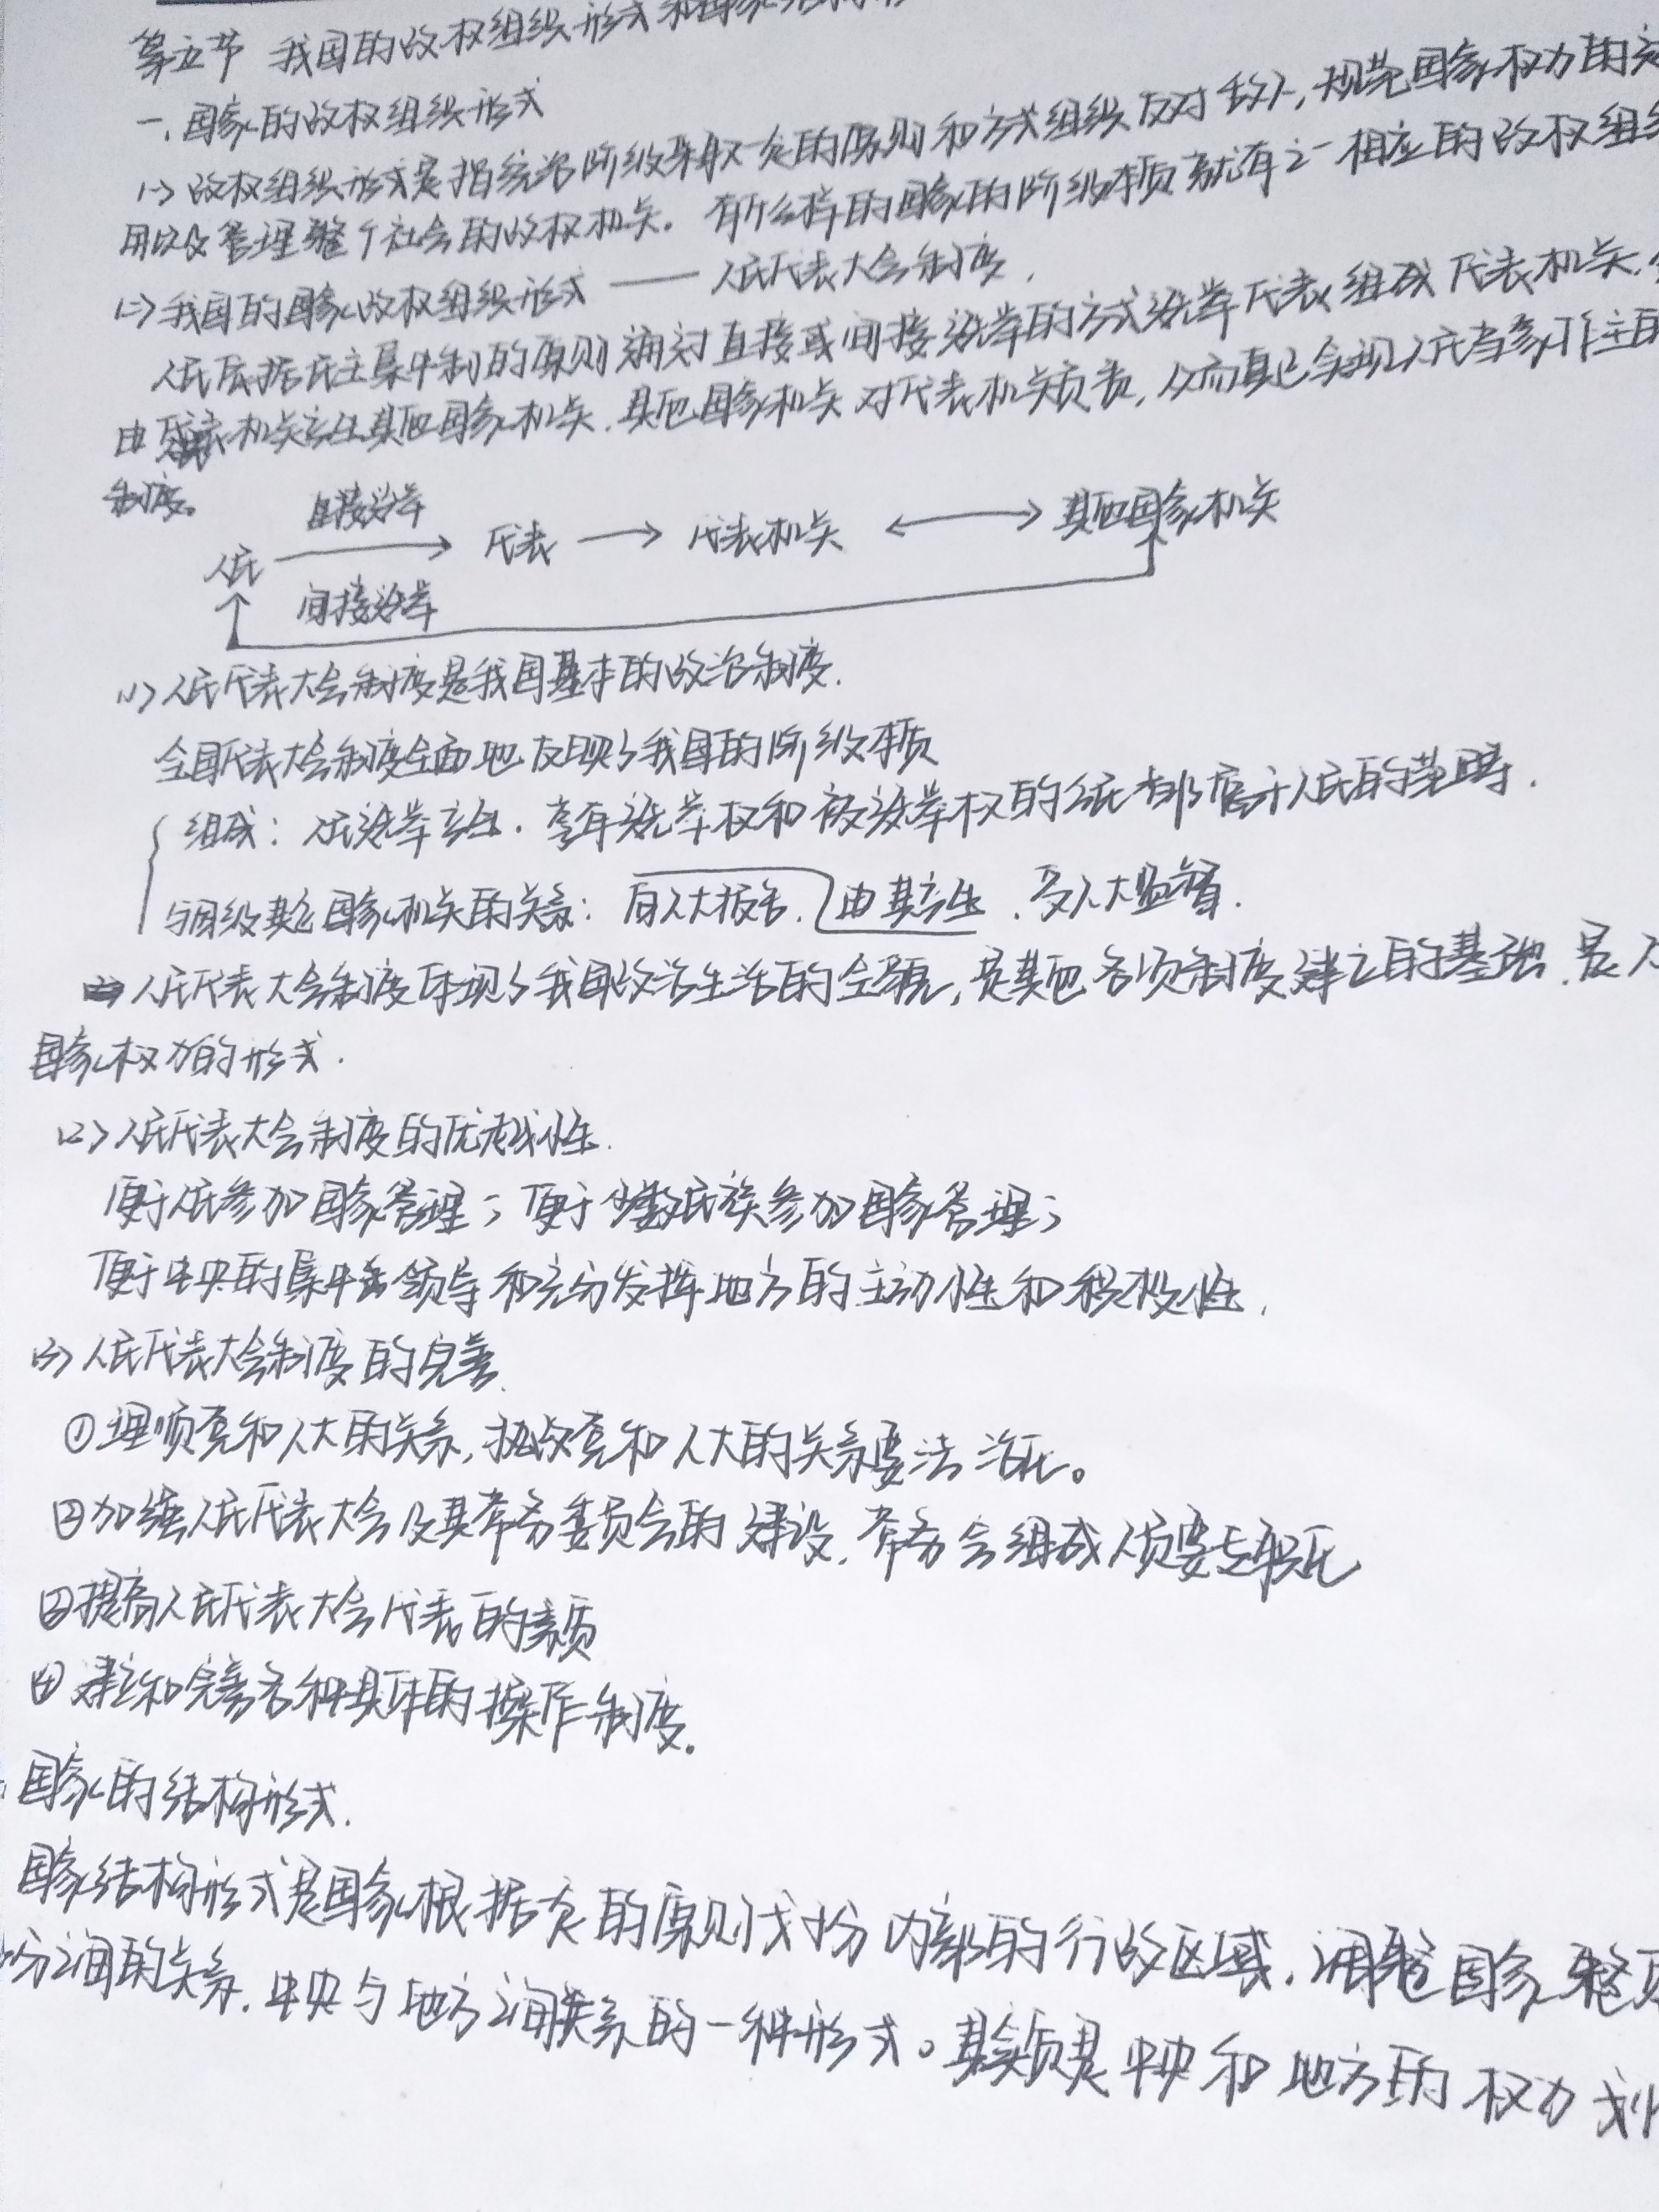 第五节 我国的政权组织形式和国家结构形
一、国家的政权组织形式
(一) 政权组织形式是指统治阶级采取一定的原则和方式组织反对敌人,规范国家权力的
用以及管理整个社会的政权机关。有什么样的国家的阶级本质就有之一相应的政权组织
(二) 我国的国家政权组织形式 —— 人民代表大会制度.
人民依据民主集中制的原则通过直接或间接选举的方式选举代表组成代表机关.
由代表机关产生其他国家机关.其他国家机关对代表机关负责,从而真正实现人民当家作主的
制度。
直接选举
人民 → 代表 → 代表机关 ↔ 其他国家机关
间接选举
(1) 人民代表大会制度是我国基本的政治制度.
全国代表大会制度全面地反映了我国的阶级本质
组成: 人民选举产生. 享有选举权和被选举权的公民都属于人民的范畴.
与同级其它国家机关的关系: 向人大报告. 由其产生. 受人大监督.
人民代表大会制度体现了我国政治生活的全貌, 是其他各项制度建立的基础. 是人
国家权力的形式.
(2) 人民代表大会制度的优越性.
便于人民参加国家管理; 便于少数民族参加国家管理;
便于中央的集中领导和充分发挥地方的主动性和积极性.
(3) 人民代表大会制度的完善.
① 理顺党和人大的关系, 执政党和人大的关系要法治化。
② 加强人民代表大会及其常务委员会的建设. 常务会组成人员要专职化
③ 提高人民代表大会代表的素质
④ 建立和完善各种具体的操作制度.
国家的结构形式.
国家结构形式是国家根据一定的原则划分内部的行政区域. 调整国家整
分之间的关系. 中央与地方之间关系的一种形式。其实质是中央和地方的权力划